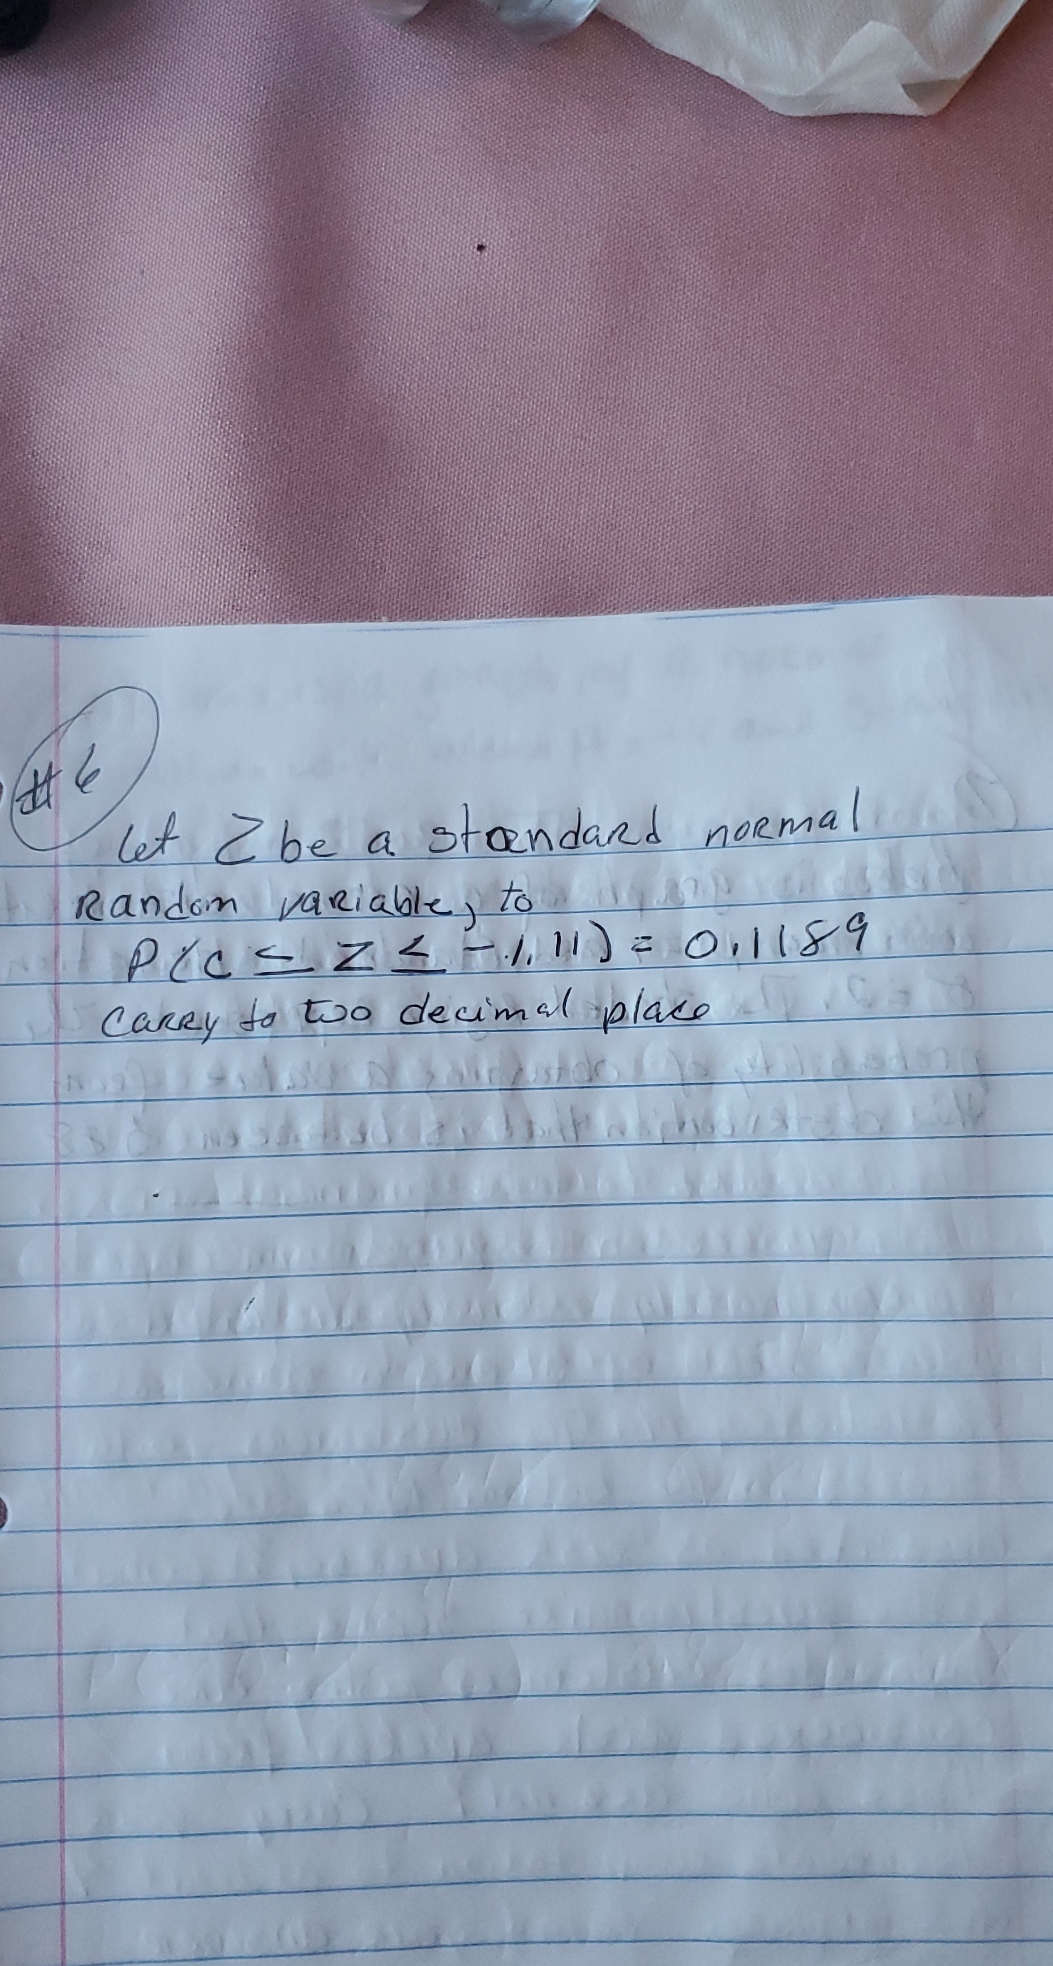 #6
Let Z be a standard normal
Random variable, to
P(c ≤ Z ≤ -1.11) = 0.1189
carry to two decimal place